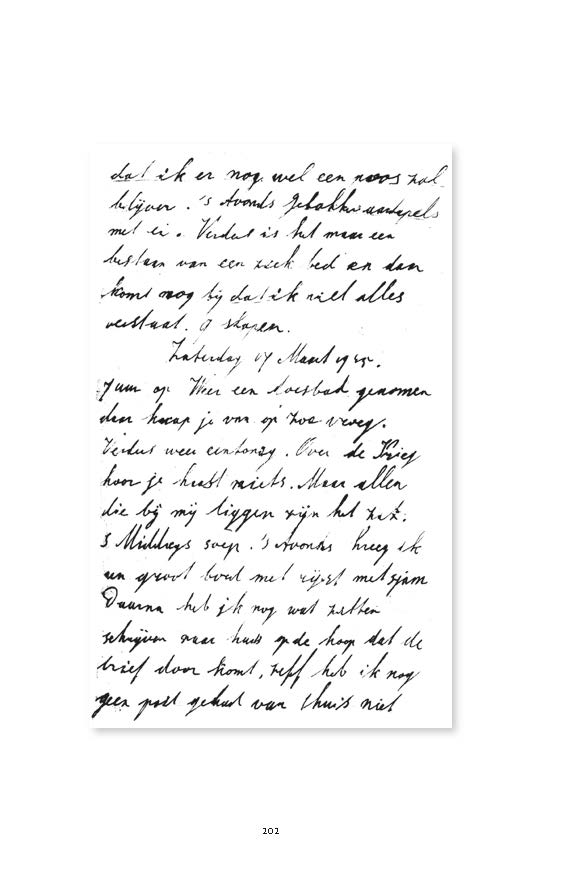 dat ik er nog wel een poos zal
blijven. 's Avonds gebakken aardapels
met ei. Verder is het maar een
bestaan van een ziek bed en dan
komt nog bij dat ik niet alles
verstaat. slapen.
Zaterdag 17 Maart 1945.
7 uur op Weer een doesbad genomen
dan knap je van op zoo vroeg.
Verder weer eentonig. Over de Krieg
hoor je haast niets. Maar allen
die bij mij liggen zijn het zat.
s Middags soep. 's Avonds kreeg ik
een groot bord met rijst met sjam
Daarna heb ik nog wat zitten
schrijven naar huis op de hoop dat de
brief door komt, zelf heb ik nog
geen post gehad van thuis niet
202